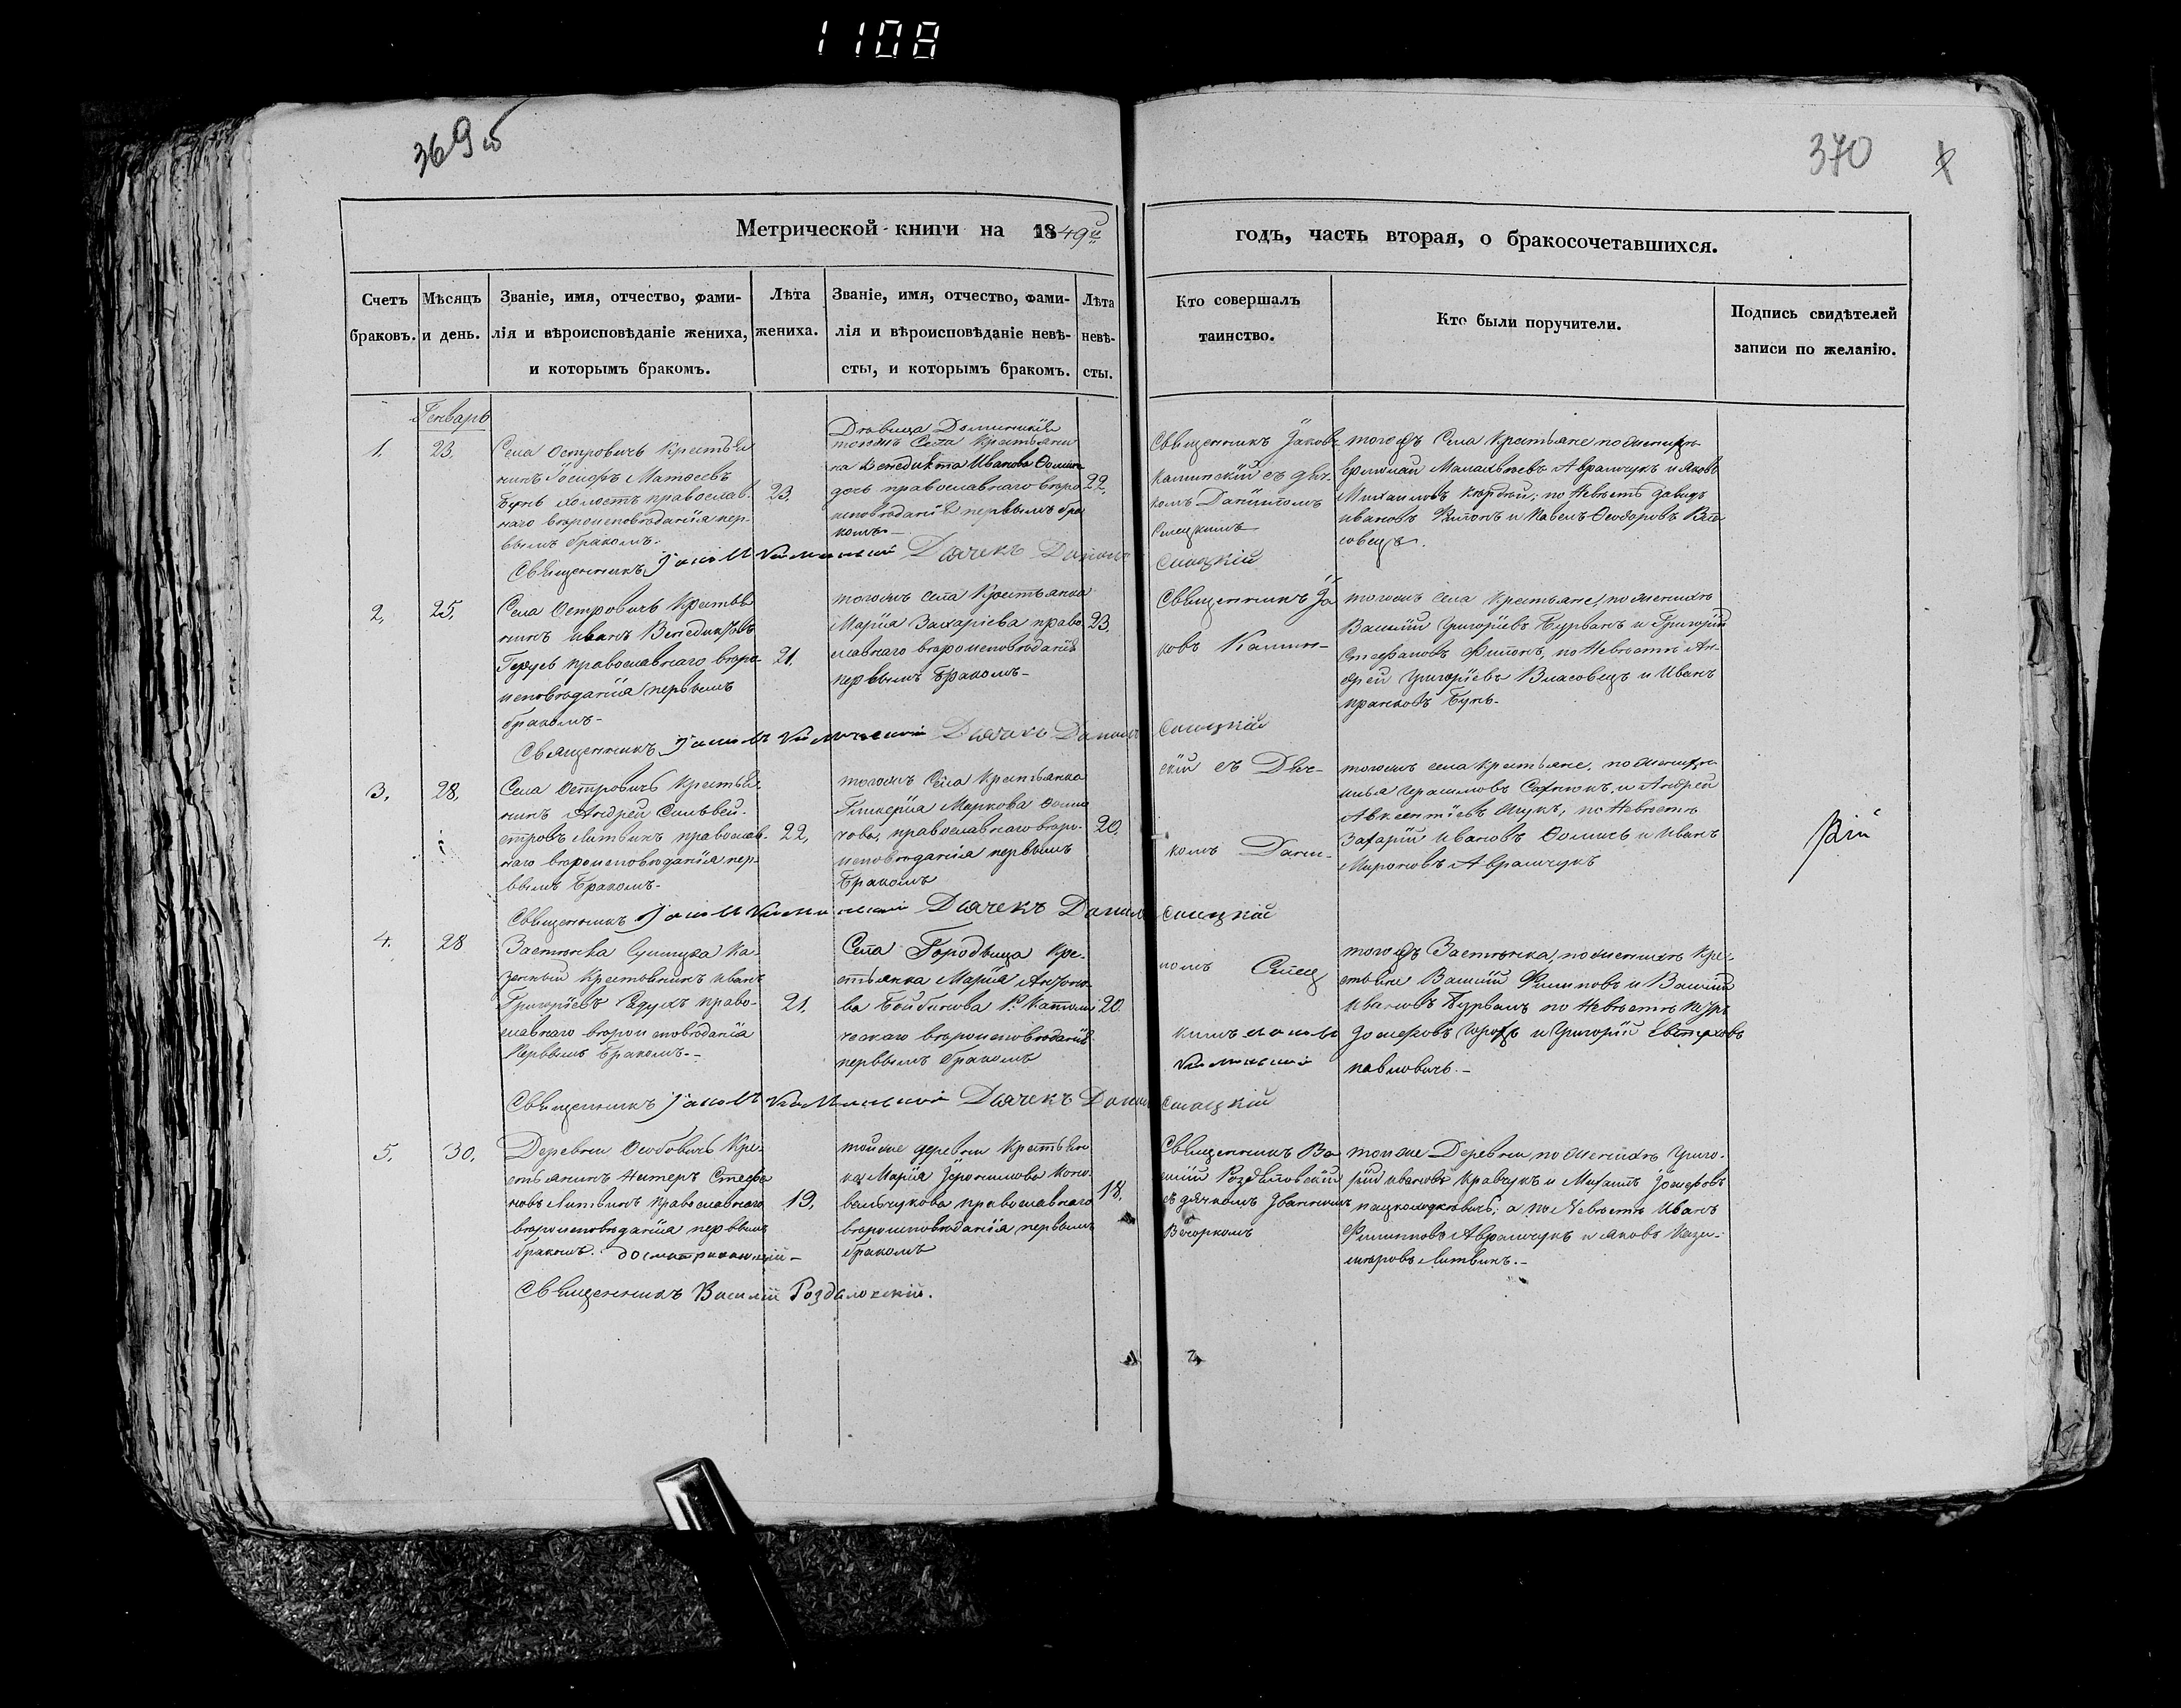 1108
369 об
370
Метрической книги на 1849й
годъ, часть вторая, о бракосочетавшихся.
Счетъ браковъ.
Мѣсяцъ и день.
Званіе, имя, отчество, фами-
лія и вѣроисповѣданіе жениха,
и которымъ бракомъ.
Лѣта
жениха.
Званіе, имя, отчество, фами-
лія и вѣроисповѣданіе невѣ-
сты, и которымъ бракомъ.
Лѣта
невѣ-
сты.
Кто совершалъ
таинство.
Кто были поручители.
Подпись свидѣтелей
записи по желанію.
Генварь
1.
23.
Села Островичъ Крестья
нинъ Іосифъ Матѳеевъ
Бунь холостъ православ-
наго вѣроисповѣданія пер-
вымъ бракомъ.
23.
Дѣвица Доминикія
тогожъ Села Крестьяни
на Венедикта Иванова
дочь православнаго вѣро
исповѣданія первымъ бра
комъ.
22.
Священникъ Іаковъ
Каминскій съ дьяч-
комъ Даніиломъ
Слецкимъ
тогожъ Села Крестьяне по женихѣ
Малахѣевъ Аврамчукъ и Яковъ
Михаиловъ; по Невѣстѣ Давидъ
Ивановъ Филонъ и Павелъ Ѳеодоровъ Вла
совецъ.
Священникъ Іаковъ Каминскій Дьячекъ Даніилъ Слецкій
2.
25.
Села Островичъ Крестья
нинъ Иванъ Венедиктовъ
Герусъ православнаго вѣро-
исповѣданія первымъ
бракомъ-
21.
тогожъ села Крестьянка
Марія Захаріева право
славнаго вѣроисповѣданія
первымъ бракомъ-
23.
Священникъ Іа
ковъ Камин-
тогожъ села Крестьяне, по женихѣ
Василій Григоріевъ Бурванъ и Григорій
Стефановъ Филонъ, по Невѣстѣ Ан-
дрей Григоріевъ Власовецъ и Иванъ
Бунь-
Священникъ Іаковъ Каминскій Дьячекъ Даніилъ Слецкій
3.
28.
Села Островичъ Крестья
нинъ Андрей Сильвей-
стровъ Литвинъ православ-
наго вѣроисповѣданія пер-
вымъ бракомъ-
22.
тогожъ Села Крестьянка
Гликерія Маркова
православнаго вѣро-
исповѣданія первымъ
бракомъ
20.
скій съ Дьяч-
комъ Дани-
тогожъ села Крестьяне, по женихѣ
Илья Герасимовъ и Андрей
Авксентіевъ, по Невѣстѣ
Захарій Ивановъ Ѳомичъ и Иванъ
Мироновъ Аврамчукъ
Священникъ Іаковъ Каминскій Дьячекъ Даніилъ Слецкій
4.
28
Застѣнка Ка-
зенный Крестьянинъ Иванъ
Григоріевъ право-
славнаго вѣроисповѣданія
первымъ бракомъ.-
21.
Села Городыща Кре-
стьянка Марія Антоно-
ва Р. Католи-
ческаго вѣроисповѣданія
первымъ бракомъ
20.
ломъ Слец
кимъ
тогожъ Застѣнка, по женихѣ Кре-
стьяне Василій Филиповъ и Василій
Ивановъ Бурванъ по Невѣстѣ
Іосифовъ и Григорій
Павловичъ.-
Священникъ Іаковъ Каминскій Дьячекъ Даніилъ Слецкій
5.
30.
Деревни Особовичъ Кре-
стьянинъ Стефа
новъ Литвинъ Православнаго
вѣроисповѣданія первымъ
бракомъ.
19.
тойже деревни Крестьян
ка Марія Іеронимова Коно-
вальчукова православнаго
вѣроисповѣданія первымъ
бракомъ
18.
Священникъ Ва
силій Роздяловскій
съ дячкомъ
тойже Деревни, по женихѣ Григо-
рій Ивановъ Кравчукъ и Іосифовъ
а по Невѣстѣ Иванъ
Филиповъ Аврамчукъ и Яковъ Кази-
мировъ Литвинъ.-
Священникъ Василій Роздяловскій.